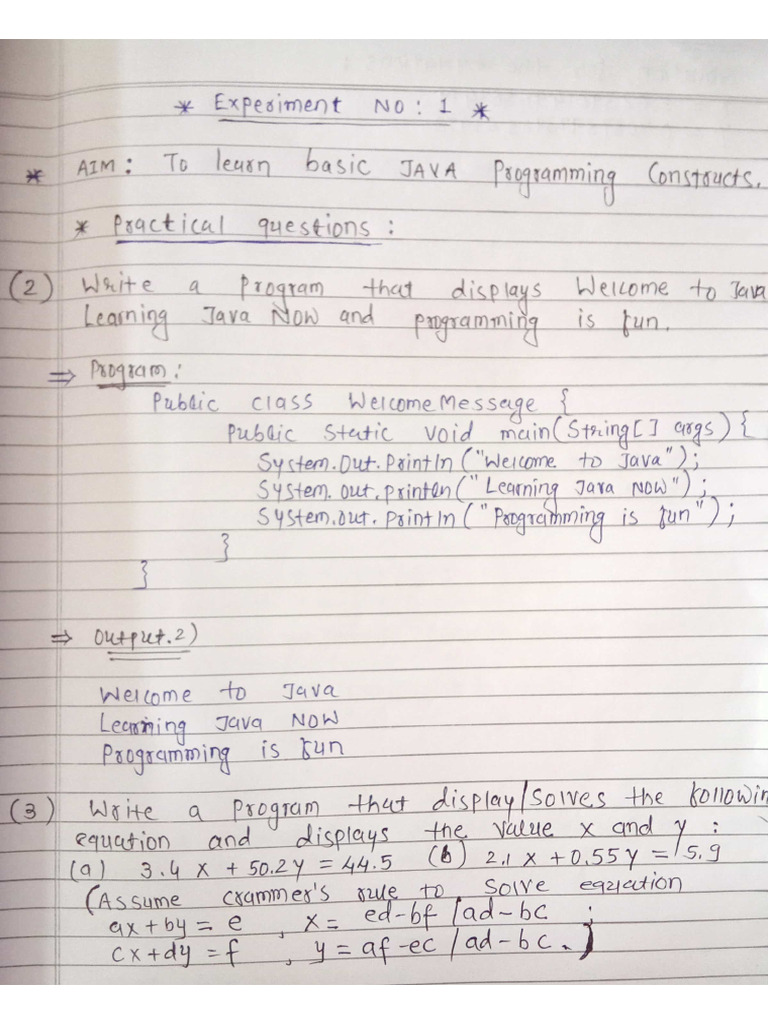 * Experiment No: 1 *
* AIM: To learn basic JAVA Programming Constructs.
* Practical questions:
(2) Write a Program that displays Welcome to Java
Learning Java Now and programming is fun.
⇒ Program:
Public class WelcomeMessage {
Public Static void main(String[] args) {
System.Out.Println ("Welcome to Java");
System.out.println("Learning Java Now");
System.out.Println ("Programming is fun");
}
}
⇒ Output.2)
Welcome to Java
Learning Java NOW
Programming is fun
(3) Write a program that display/solves the followin
equation and displays the value x and y :
(a) 3.4 x + 50.2y = 44.5 (b) 2.1 x + 0.55 y = 5.9
(Assume crammer's rule to solve equation
ax + by = e , x = ed-bf / ad-bc ;
cx + dy = f , y = af-ec / ad-bc.)